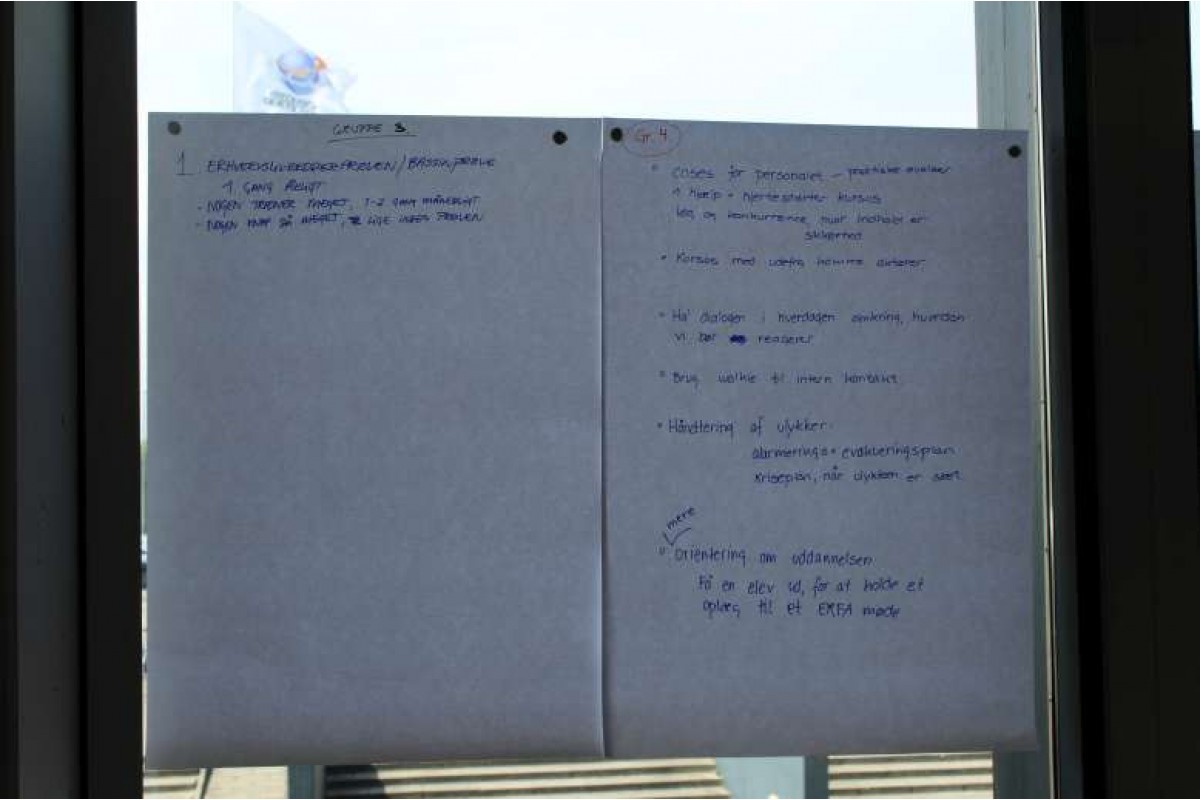 GRUPPE 3.
1. ERHVERVSLIVREDDERPRØVEN/BASSINPRØVE
1 GANG ÅRLIGT
- NOGEN TRÆNER MEGET, 1-2 GANG MÅNEDLIGT
- NOGEN KNAP SÅ MEGET, LIGE INDEN PRØVEN
Gr. 4
Cases for personalet - praktiske øvelser
1. hjælp + hjertestarter kursus
leg og konkurrence, hvor indholdet er
sikkerhed
Kursus med udefra komme aktører
Ha' dialogen i hverdagen omkring, hvordan
vi bør reagerer
Brug walkie til intern kontakt
Håndtering af ulykker
alarmering evakueringsplan
Kriseplan, når ulykken er sket
mere
Orientering om uddannelsen
Få en elev ud, for at holde et
oplæg til et ERFA møde